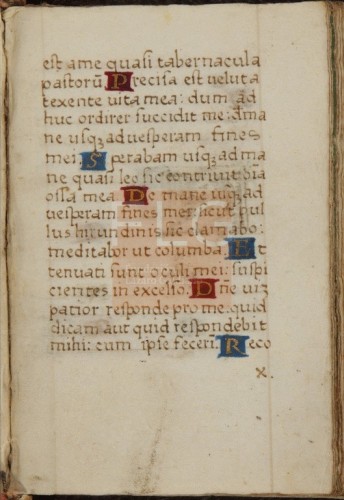 est a me quasi tabernacula
pastorũ. Precisa est velut a
texente vita mea: dum ad
huc ordirer succidit me: d̃ma
ne usqꝫ ad vesperam fines
mei. Sperabam usqꝫ ad ma
ne quasi leo sic contrivit õia
ossa mea. De mane usqꝫ ad
vesperam fines me: sicut pul
lus hirundinis sic clamabo:
meditabor ut columba. Et
tenuati sunt oculi mei: suspi
cientes in excelso. Dñe vim
patior responde pro me. quid
dicam aut quid respondebit
mihi: cum ipse fecerĩ. Reco
x.